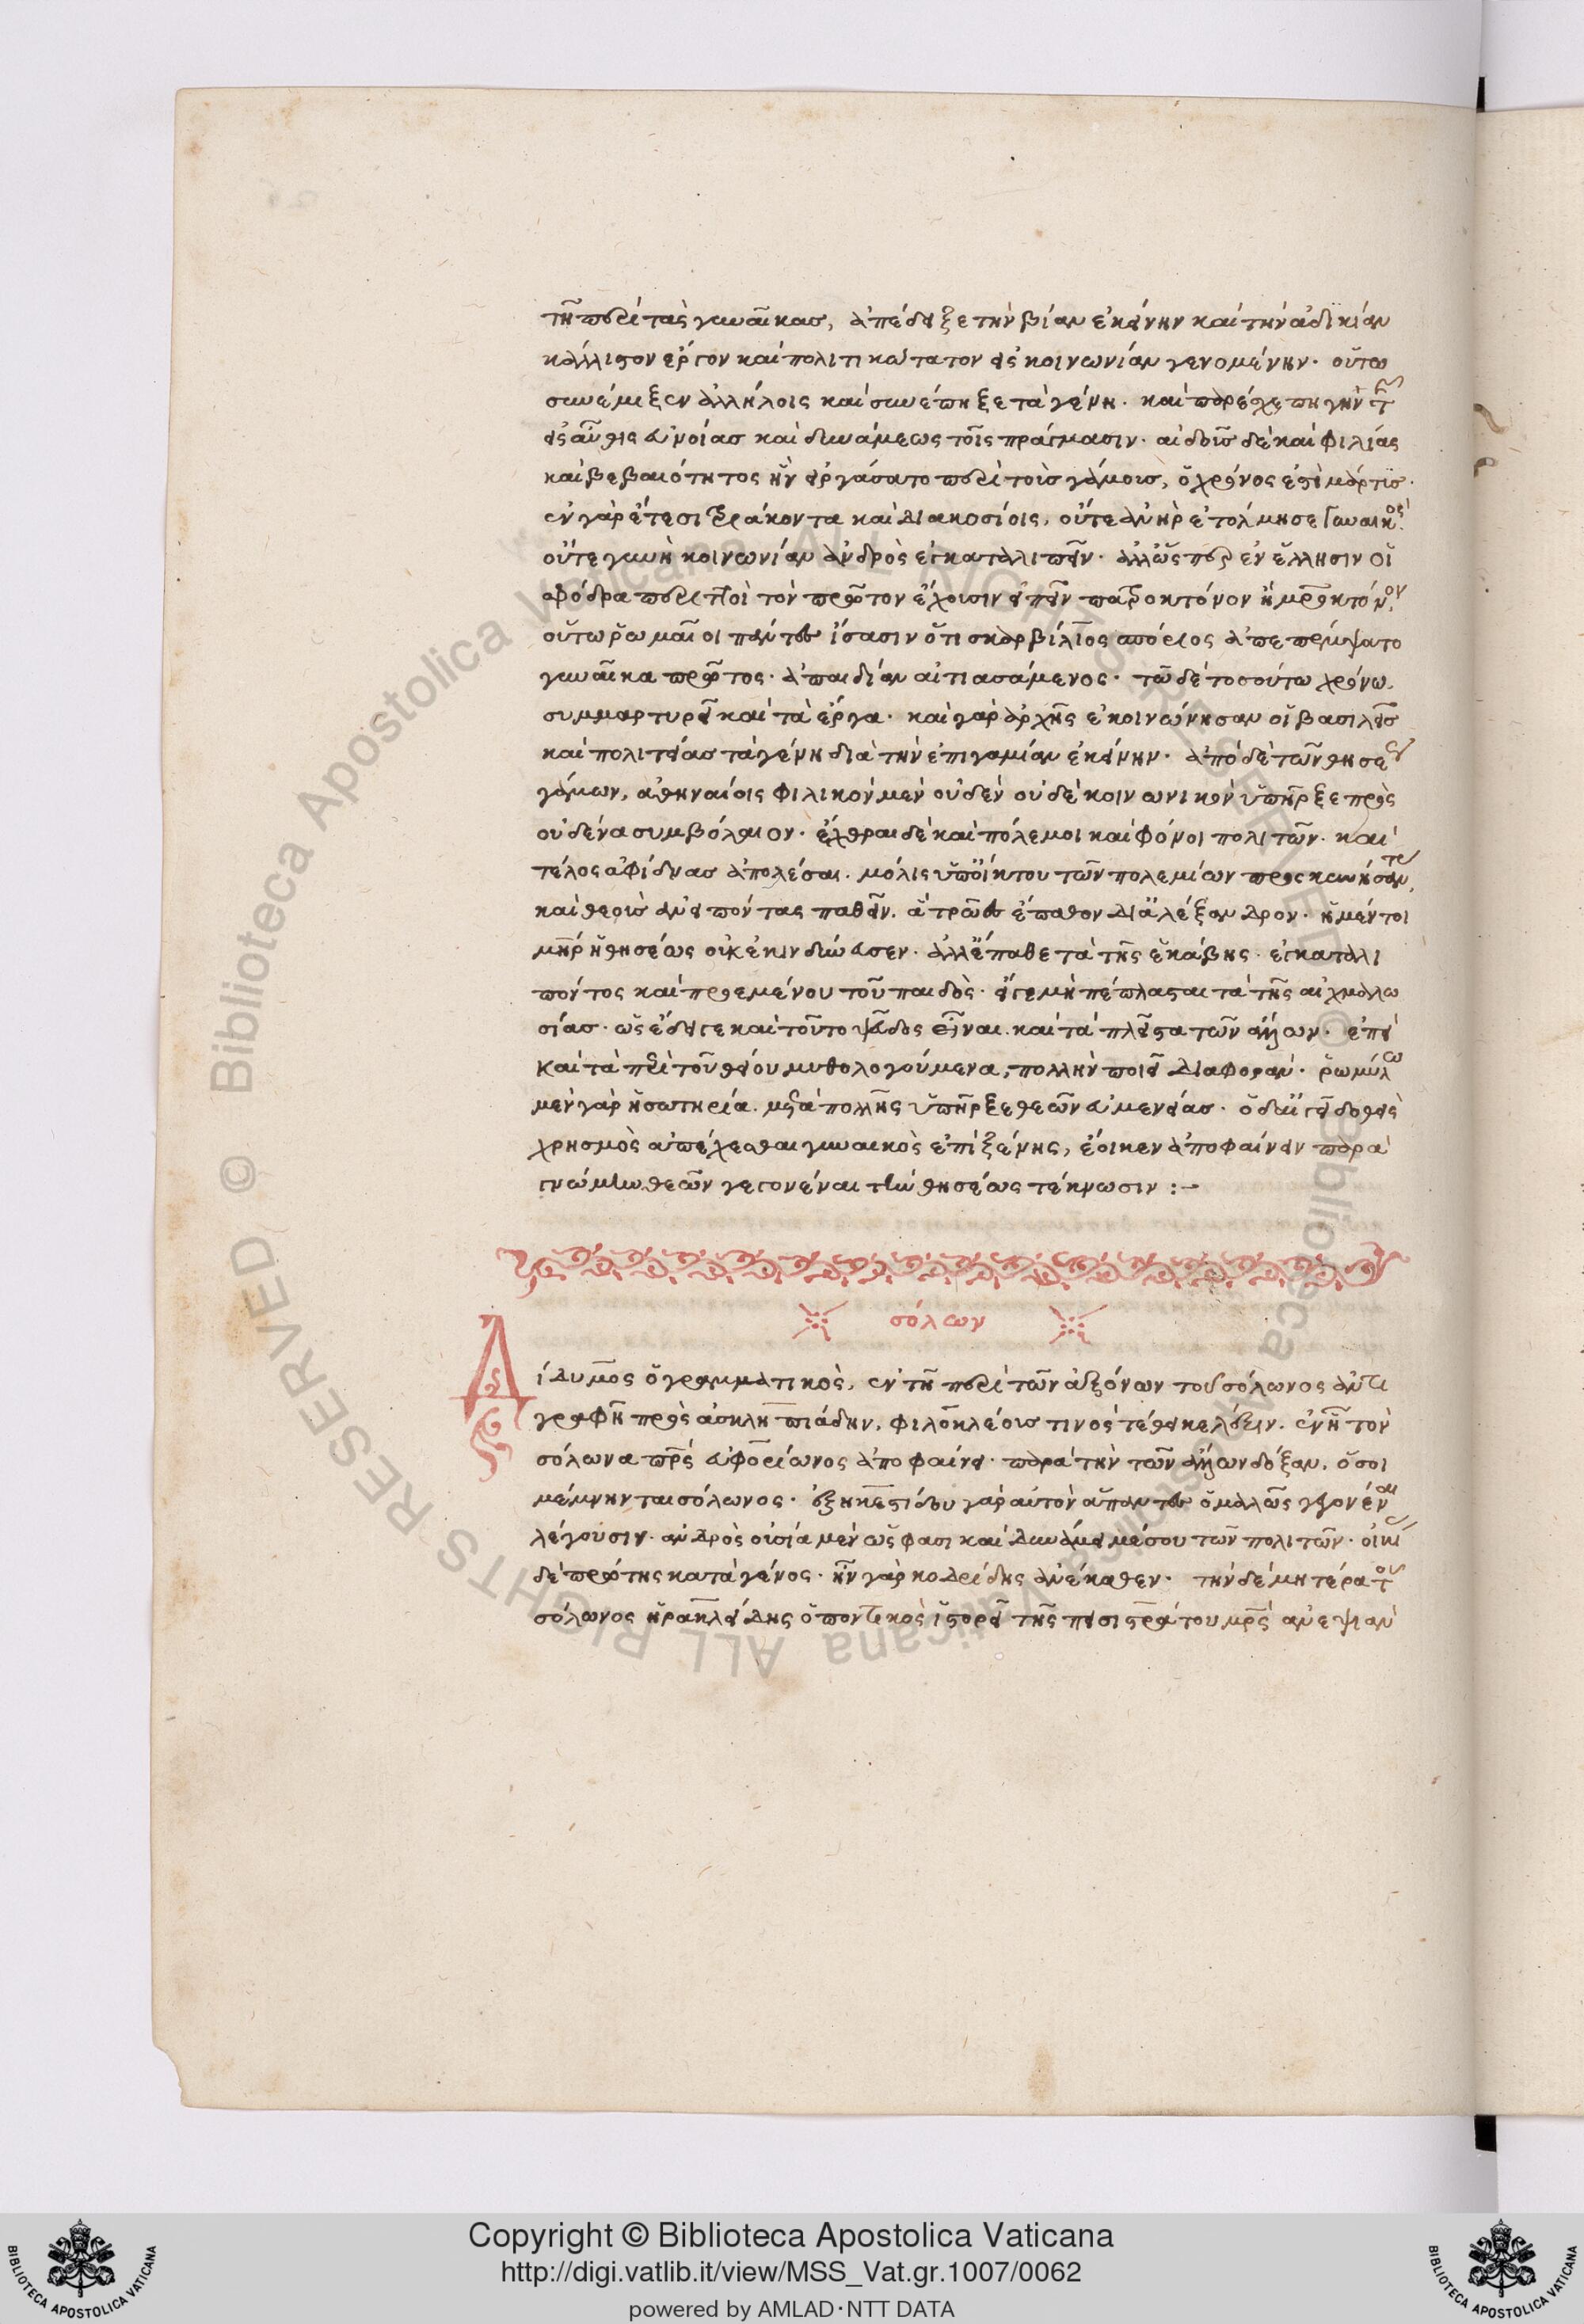 τῇ περὶ τὰς γυναῖκας, ἀπέδειξε τὴν βίαν ἐκείνην καὶ τὴν ἀδικίαν
κάλλιστον ἔργον καὶ πολιτικώτατον εἰς κοινωνίαν γενομένην. οὕτω
συνέμιξεν ἀλλήλοις καὶ συνέπηξε τὰ γένη. καὶ παρέσχε πηγὴν τῆς
εἰσαῦθις εὐνοίας καὶ δυνάμεως τοῖς πράγμασιν. αἰδοῦς δὲ καὶ φιλίας
καὶ βεβαιότητος ἣν εἰργάσατο περὶ τοὺς γάμους, ὁ χρόνος ἐστὶ μάρτυς.
ἐν γὰρ ἔτεσι τριάκοντα καὶ διακοσίοις, οὔτε ἀνὴρ ἐτόλμησε γυναικὸς
οὔτε γυνὴ κοινωνίαν ἀνδρὸς ἐγκαταλιπεῖν. ἀλλ' ὥσπερ ἐν ἕλλησιν οἱ
σφόδρα περιττοὶ τὸν πρῶτον ἔχουσιν εἰπεῖν πατροκτόνον ἢ μητροκτόνον.
οὕτω ῥωμαῖοι πάντες ἴσασιν ὅτι σκαρβίλιος σπόριος ἀπεπέμψατο
γυναῖκα πρῶτος. ἀπαιδίαν αἰτιασάμενος. τῶ δὲ τοσούτω χρόνω.
συμμαρτυρεῖ καὶ τὰ ἔργα. καὶ γὰρ ἀρχῆς ἐκοινώνησαν οἱ βασιλεῖς
καὶ πολιτείας τὰ γένη διὰ τὴν ἐπιγαμίαν ἐκείνην. ἀπὸ δὲ τῶν θησέως
γάμων, ἀθηναίοις φιλικὸν μὲν οὐδὲν οὐδὲ κοινωνικὸν ὑπῆρξε πρὸς
οὐδένα συμβόλαιον. ἔχθραι δὲ καὶ πόλεμοι καὶ φόνοι πολιτῶν. καὶ
τέλος ἀφίδνας ἀπολέσαι. μόλις ὑπὸ οἴκτου τῶν πολεμίων προσκυνήσαντες
καὶ θεοὺς ἀνειπόντας παθεῖν. ἃ τρῶες ἔπαθον δι' ἀλέξανδρον. ἡ μέντοι
μήτηρ ἡ θησέως οὐκ ἐκινδύνευσεν. ἀλλ' ἔπαθε τὰ τῆς ἑκάβης. ἐγκαταλι
πόντος καὶ προεμένου τοῦ παιδὸς. εἴγε μὴ πέπλασται τὰ τῆς αἰχμαλω
σίας. ὡς ἔδει γε καὶ τοῦτο ψεῦδος εἶναι. καὶ τὰ πλεῖστα τῶν ἄλλων. ἐπεὶ
καὶ τὰ περὶ τοῦ θείου μυθολογούμενα, πολλὴν ποιεῖ διαφοράν. ῥωμύλω
μὲν γὰρ ἡ σωτηρία. μετὰ πολλῆς ὑπῆρξε θεῶν εὐμενείας. ὁ δ' αἰγεῖ δοθεὶς
χρησμὸς ἀπέχεσθαι γυναικὸς ἐπὶ ξένης, ἔοικεν ἀποφαίνειν παρὰ
γνώμην θεῶν γεγονέναι τὴν θησέως τέκνωσιν :-
σόλων
Δίδυμος ὁ γραμματικὸς, ἐν τῇ περὶ τῶν ἀξόνων τοῦ σόλωνος ἀντι
γραφῇ πρὸς ἀσκληπιάδην, φιλοκλέους τινὸς τέθεικε λέξιν. ἐν ἧ τὸν
σόλωνα πατρὸς εὐφορίωνος ἀποφαίνει. παρὰ τὴν τῶν ἄλλων δόξαν. ὅσοι
μέμνηνται σόλωνος. ἐξηκεστίδου γὰρ αὐτὸν ἅπαντες ὁμαλῶς γεγονέναι
λέγουσιν. ἀνδρὸς οὐσία μὲν ὥς φασι καὶ δυνάμει μέσου τῶν πολιτῶν. οἰκίας
δὲ πρώτης κατὰ γένος. ἦν γὰρ κοδρίδης ἀνέκαθεν. τὴν δὲ μητέρα τοῦ
σόλωνος ἡρακλείδης ὁ ποντικὸς ἱστορεῖ τῆς πεισιστράτου μητρὸς ἀνεψιὰν
Copyright © Biblioteca Apostolica Vaticana
http://digi.vatlib.it/view/MSS_Vat.gr.1007/0062
powered by AMLAD·NTT DATA